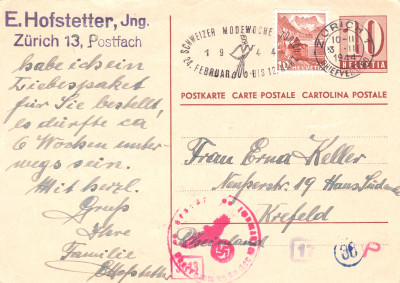 E. Hofstetter, Jng.
Zürich 13, Postfach
habe ich ein
Liebespaket
für Sie bestellt,
es dürfte ca
6 Wochen unter-
wegs sein.
Mit herzl.
Gruß
Ihre
Familie
E Hofstetter
SCHWEIZER MODEWOCHE ZÜRICH
1944
24. FEBRUAR BIS 12.
ZÜRICH 1
10-11
1944
BRIEFVERSAND
10
HELVETIA
POSTKARTE CARTE POSTALE CARTOLINA POSTALE
Frau Erna Keller
19
Krefeld
Rheinland